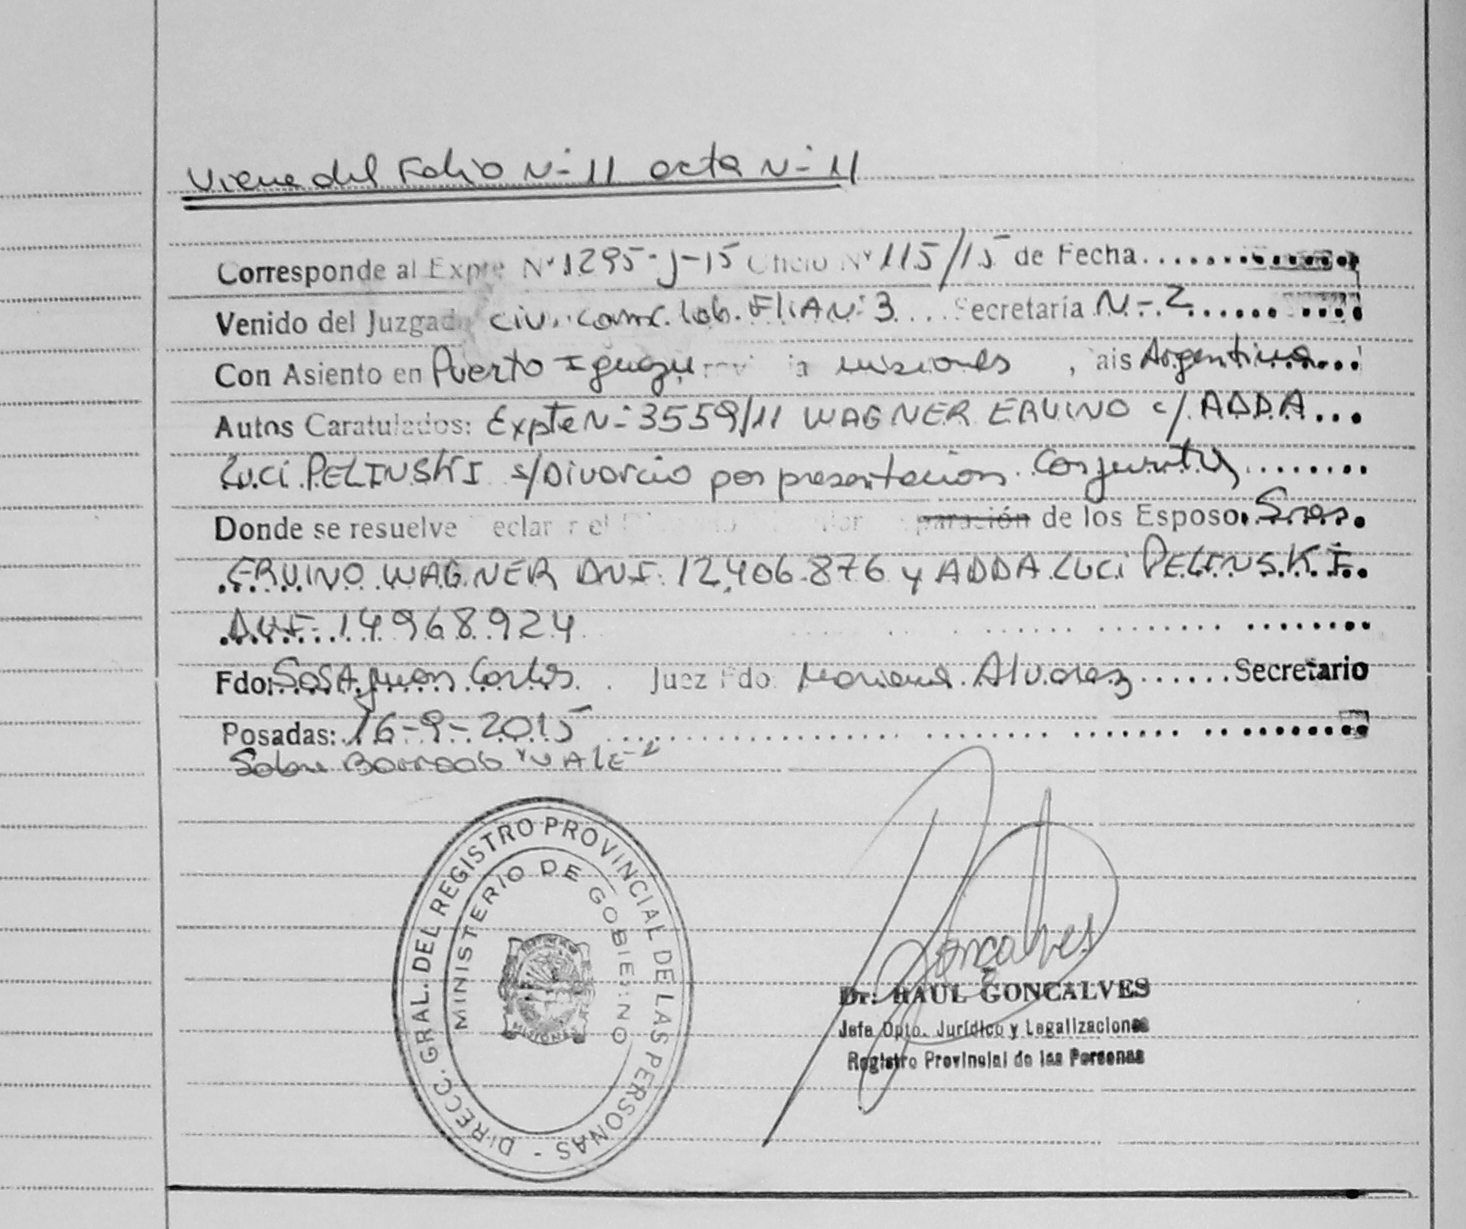 Viene del Folio N- 11 acta N- 11
Corresponde al Expte Nº 1295-J-15 Oficio Nº 115/15 de Fecha
Venido del Juzgado Civ. Comc. Lab. Flia N: 3 Secretaría N-2
Con Asiento en Puerto Iguazu Misiones, Pais Argentina
Autos Caratulados: Expte N- 3559/11 WAGNER ERVINO c/ ADDA
LUCI PELINSKI s/Divorcio por presentacion Conjunta
Donde se resuelve eclar r el paración de los Esposos Sres.
ERVINO WAGNER DNI. 12.406.876 y ADDA LUCI PELINSKI
DNI- 14968924
Fdo: SOSA Juan Carlos Juez Fdo: Mariana Alvarez Secretario
Posadas: 16-9-2015
Sobre Borrado "VALE"
DIRECC. GRAL. DEL REGISTRO PROVINCIAL DE LAS PERSONAS -
MINISTERIO DE GOBIERNO
MISIONES
Gonçalves
Dr: RAUL GONCALVES
Jefe Dpto. Jurídico y Legalizaciones
Registro Provincial de las Personas